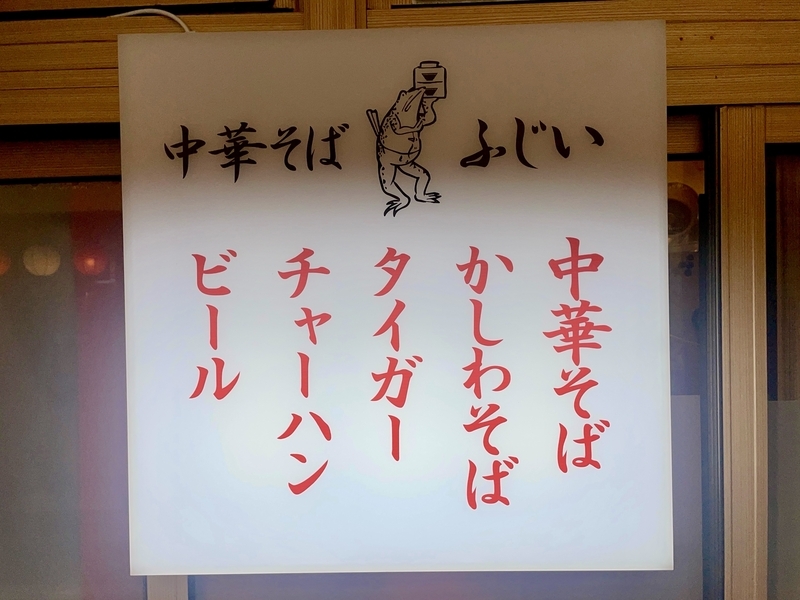 中華そば ふじい
中華そば
かしわそば
タイガー
チャーハン
ビール